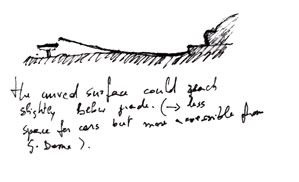 the curved surface could reach
slightly below grade. (→ less
space for cars but more accessible from
G. Dome).